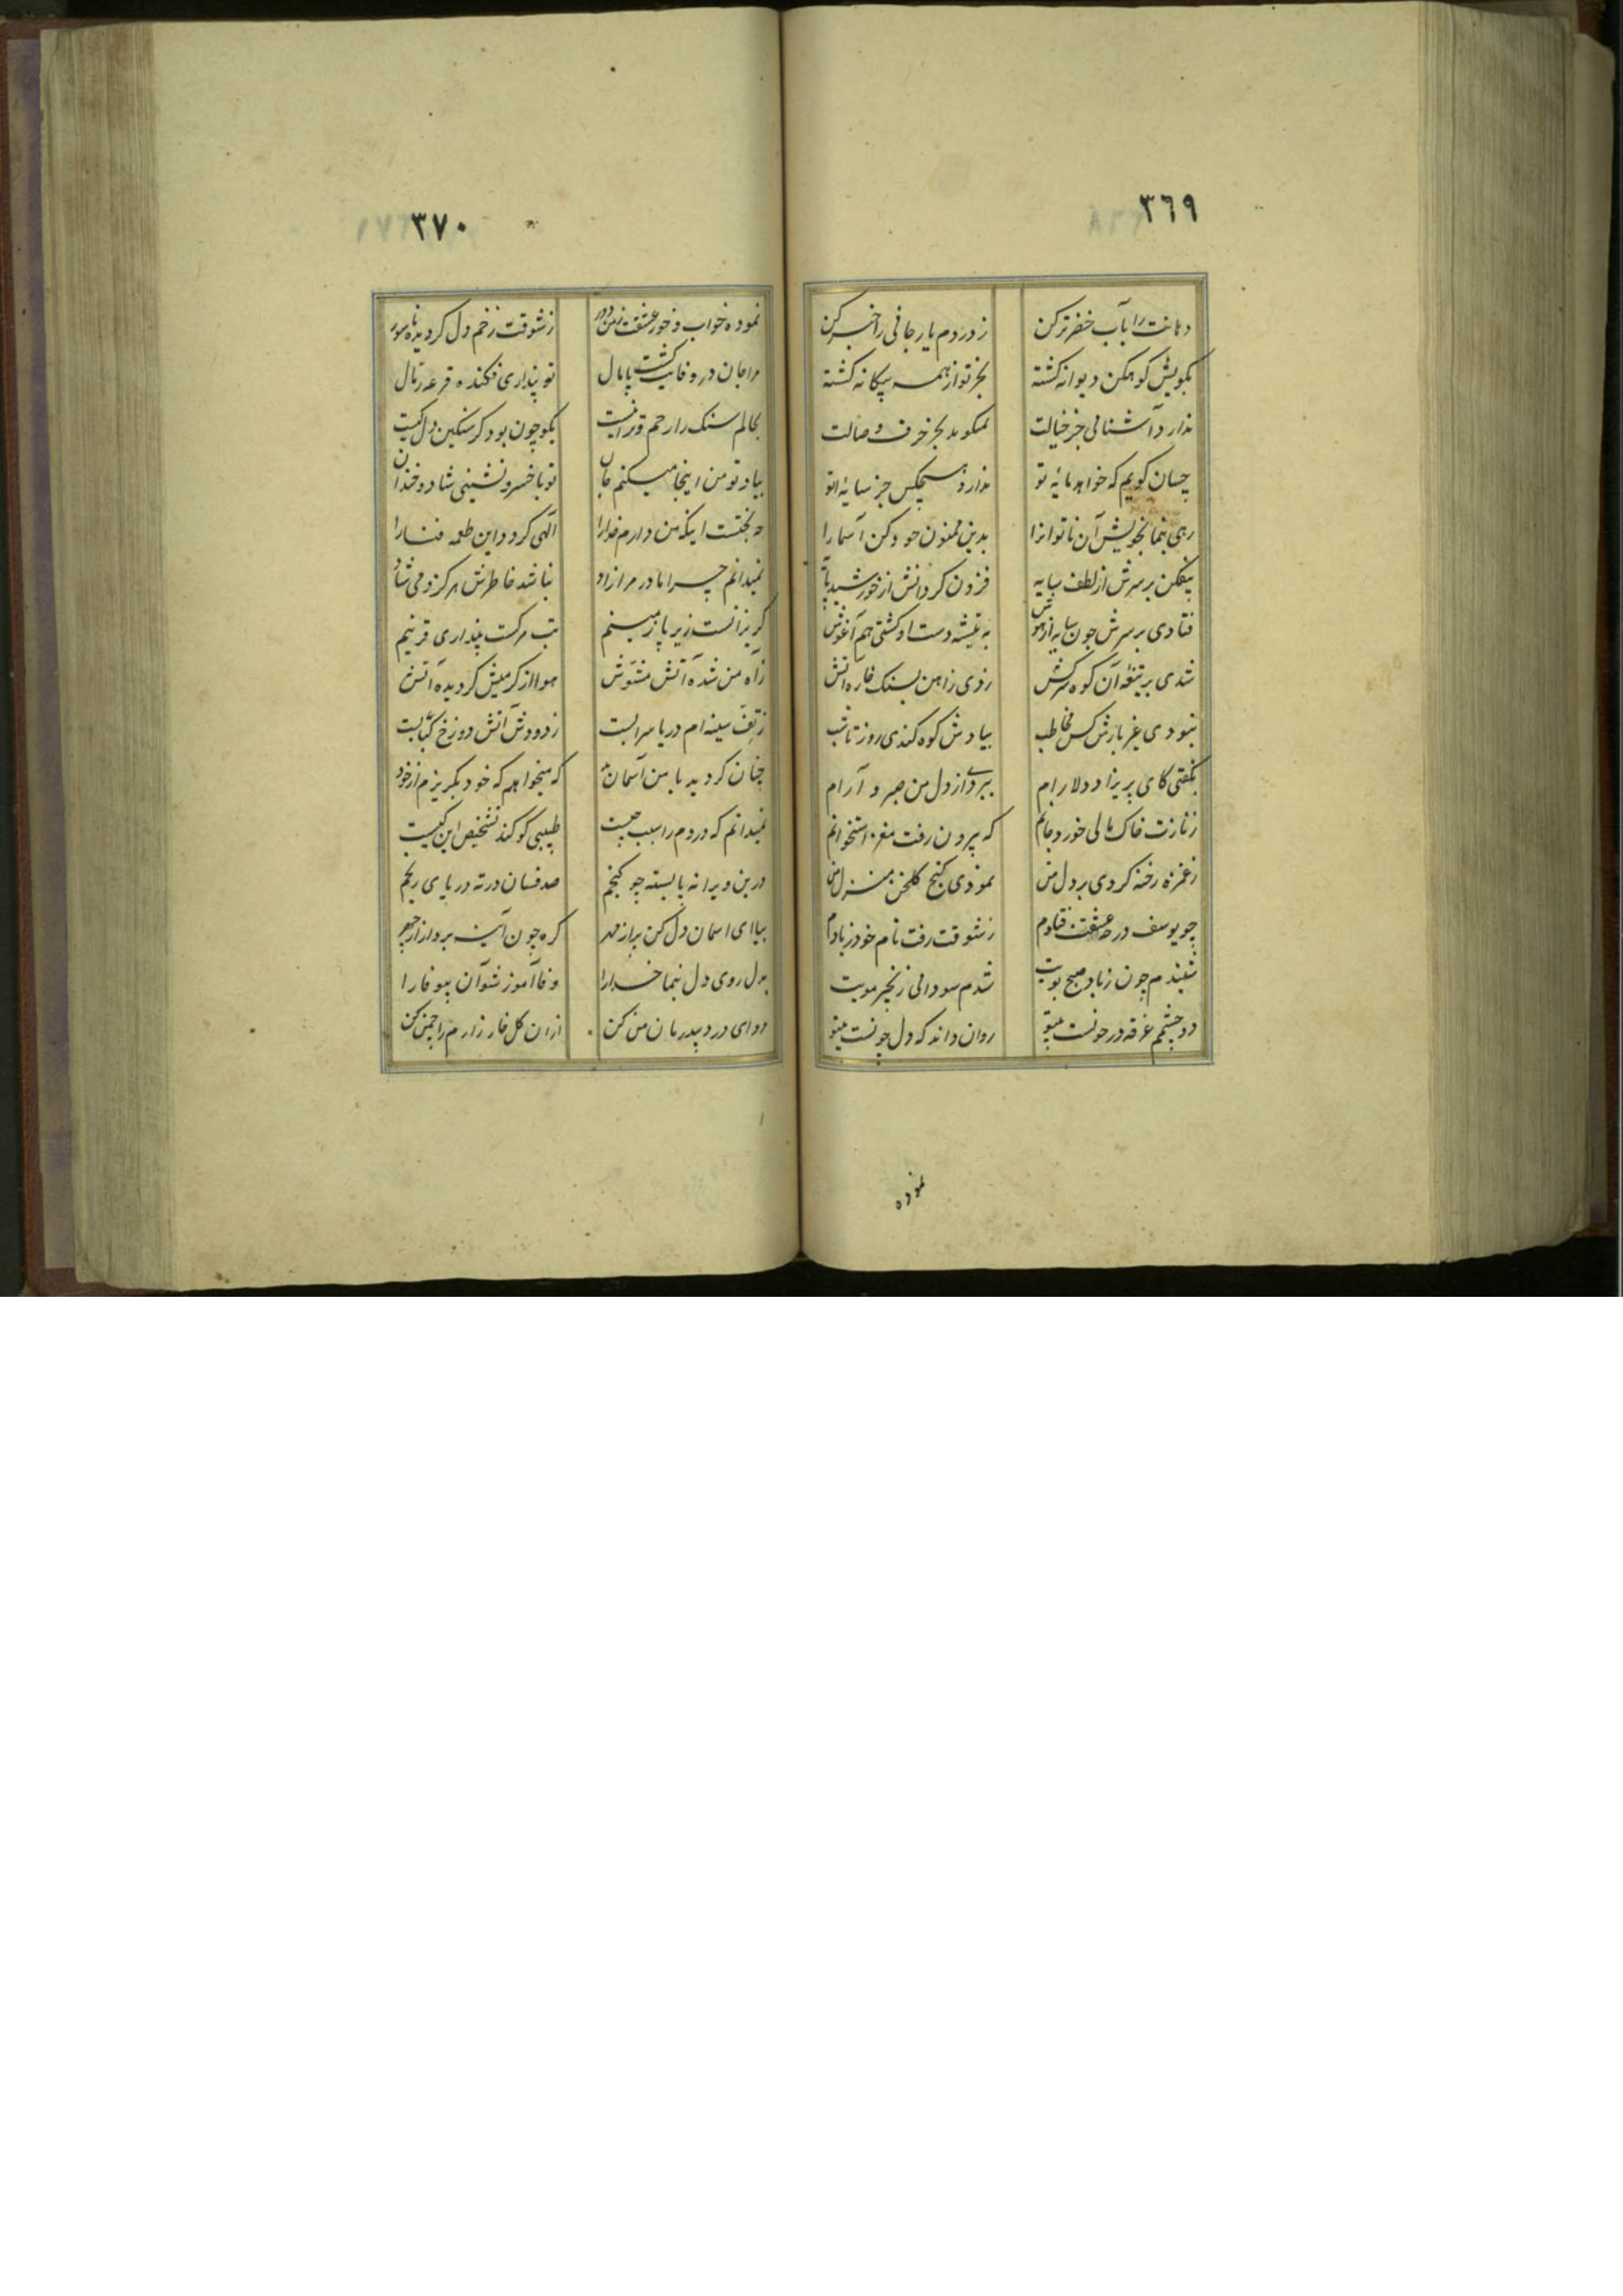 ٣٦٩
دهانت را بآب خضر تر کن
ز دردم یار جافی را خبر کن
بگویش کوهکن دیوانه کشته
بجز تو از همه بیکانه کشته
ندارد آشنائی جز خیالت
نمیکوید بجز حرف وصالت
چسان کویم که خواهد مایهٔ تو
ندارد هیچکس جز سایهٔ تو
رهی بنما بخویش آن ناتوانرا
بدین ممنون خود کن آسمانرا
بیفکن بر سرش از لطف سایه
فزون کردانش از خورشید پایه
فتادی بر سرش چون سایه از هوش
به تیشه دست او کشتی هم آغوش
شدی بر تیغهٔ آن کوه سرکش
زدی ز اهن بسنک خاره آتش
نبودی غیر یارش کس مخاطب
بیادش کوه کندی روز تا شب
بگفتی کای پریزاد دلارام
ببردی از دل من صبر و آرام
ز نازت خاک مالی خورد جانم
که بیرون رفت مغز استخوانم
ز غمزه رخنه کردی بر دل من
نمودی کنج کلخن منزل من
چو یوسف در چه عشقت فتادم
ز شوقت رفت نام خود ز یادم
شنیدم چون ز باد صبح بویت
شدم سودائی زنجیر مویت
دو چشمم غرقه در خونست بیتو
روان داند که دل چونست بیتو
نموده
٣٧٠
نموده خواب و خور عشقت ز من دور
ز شوقت زخم دل کردیده ناسور
مرا جان در وفایت کشت پامال
تو پنداری فکنده قرعه رمال
بحالم سنک را رحم و ترا نیست
بکو چون بود کر سنکین دل کیست
بیاد تو من اینجا میکنم جان
تو با خسرو نشینی شاد و خندان
چه بختست اینکه من دارم خدارا
الهی کردد این طعمه فنا را
نمیدانم چرا مادر مرا زاد
نباشد خاطرش هرکز دمی شاد
کریزانست زیر پا زمینم
تب مرکست پنداری قرینم
ز آه من شده آتش مشوش
هوا از کرمیش کردیده آتش
ز تف سینه ام دریا سرابست
ز دودش آتش دوزخ کبابست
چنان کردید با من آسمان بد
که میخواهم که خود بکریزم از خود
نمیدانم که دردم را سبب چیست
طبیبی کو کند تشخیص این کیست
درین ویرانه پا بسته چو کنجم
صدفسان در ته دریای رنجم
بیا ای اسمان دل کن پر از مهر
کره چون آینه بردار از چهر
بدل روی دل بنما خدارا
وفا آموز شو آن بیوفا را
دوای درد بیدرمان من کن
از ان کل خار زارم را چمن کن